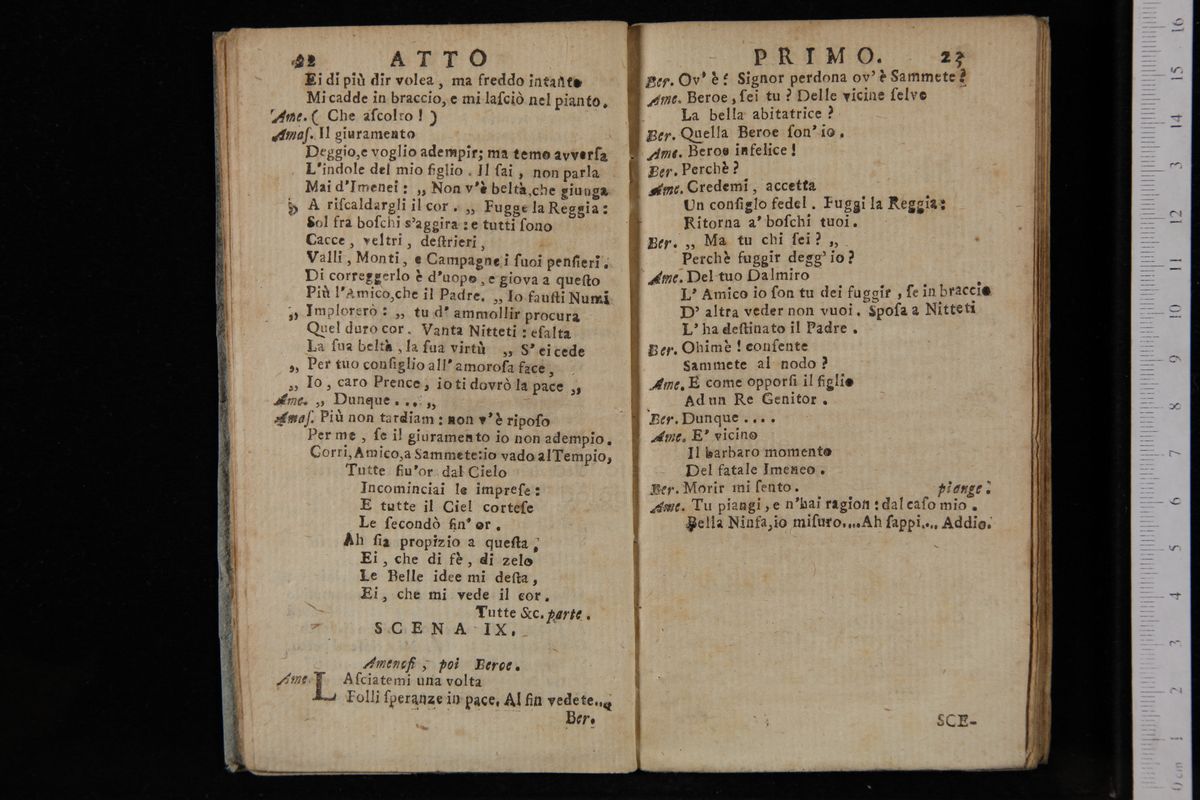 22 ATTO
Ei di più dir volea, ma freddo intanto
Mi cadde in braccio, e mi laſciò nel pianto.
Ame. ( Che aſcolto ! )
Amaſ. Il giuramento
Deggio,e voglio adempir; ma temo avverſa
L'indole del mio figlio. Il ſai, non parla
Mai d'Imenei : „ Non v'è beltà,che giunga
„ A riſcaldargli il cor. „ Fugge la Reggia:
Sol fra boſchi s'aggira : e tutti ſono
Cacce, veltri, deſtrieri,
Valli, Monti, e Campagne i ſuoi penſieri.
Di correggerlo è d'uopo, e giova a queſto
Più l'Amico,che il Padre. „ Io fauſti Numi
„ Implorerò : „ tu d' ammollir procura
Quel duro cor. Vanta Nitteti : eſalta
La ſua beltà, la ſua virtù „ S' ei cede
„ Per tuo conſiglio all' amoroſa face,
„ Io, caro Prence, io ti dovrò la pace „
Ame. „ Dunque . . . „
Amaſ. Più non tardiam : non v'è ripoſo
Per me, ſe il giuramento io non adempio.
Corri, Amico,a Sammete:io vado al Tempio,
Tutte fiu'or dal Cielo
Incominciai le impreſe :
E tutte il Ciel corteſe
Le ſecondò fin' or.
Ah ſia propizio a queſta,
Ei, che di fè, di zelo
Le Belle idee mi deſta,
Ei, che mi vede il cor.
Tutte &c. parte.
SCENA IX.
Amenofi, poi Beroe.
Ame. LAſciatemi una volta
Folli ſperanze in pace. Al fin vedete...
Ber.
PRIMO. 23
Ber. Ov' è ? Signor perdona ov' è Sammete ?
Ame. Beroe, ſei tu ? Delle vicine ſelve
La bella abitatrice ?
Ber. Quella Beroe ſon' io.
Ame. Beroe infelice !
Ber. Perchè ?
Ame. Credemi, accetta
Un conſiglo fedel. Fuggi la Reggia:
Ritorna a' boſchi tuoi.
Ber. „ Ma tu chi ſei ? „
Perchè fuggir degg' io ?
Ame. Del tuo Dalmiro
L' Amico io ſon tu dei fuggir, ſe in braccio
D' altra veder non vuoi. Spoſa a Nitteti
L' ha deſtinato il Padre.
Ber. Ohimè ! conſente
Sammete al nodo ?
Ame. E come opporſi il figlio
Ad un Re Genitor.
Ber. Dunque . . . .
Ame. E' vicino
Il barbaro momento
Del fatale Imeneo.
Ber. Morir mi ſento. piange.
Ame. Tu piangi, e n'hai ragion : dal caſo mio.
Bella Ninfa,io miſuro.... Ah ſappi.... Addio.
SCE-